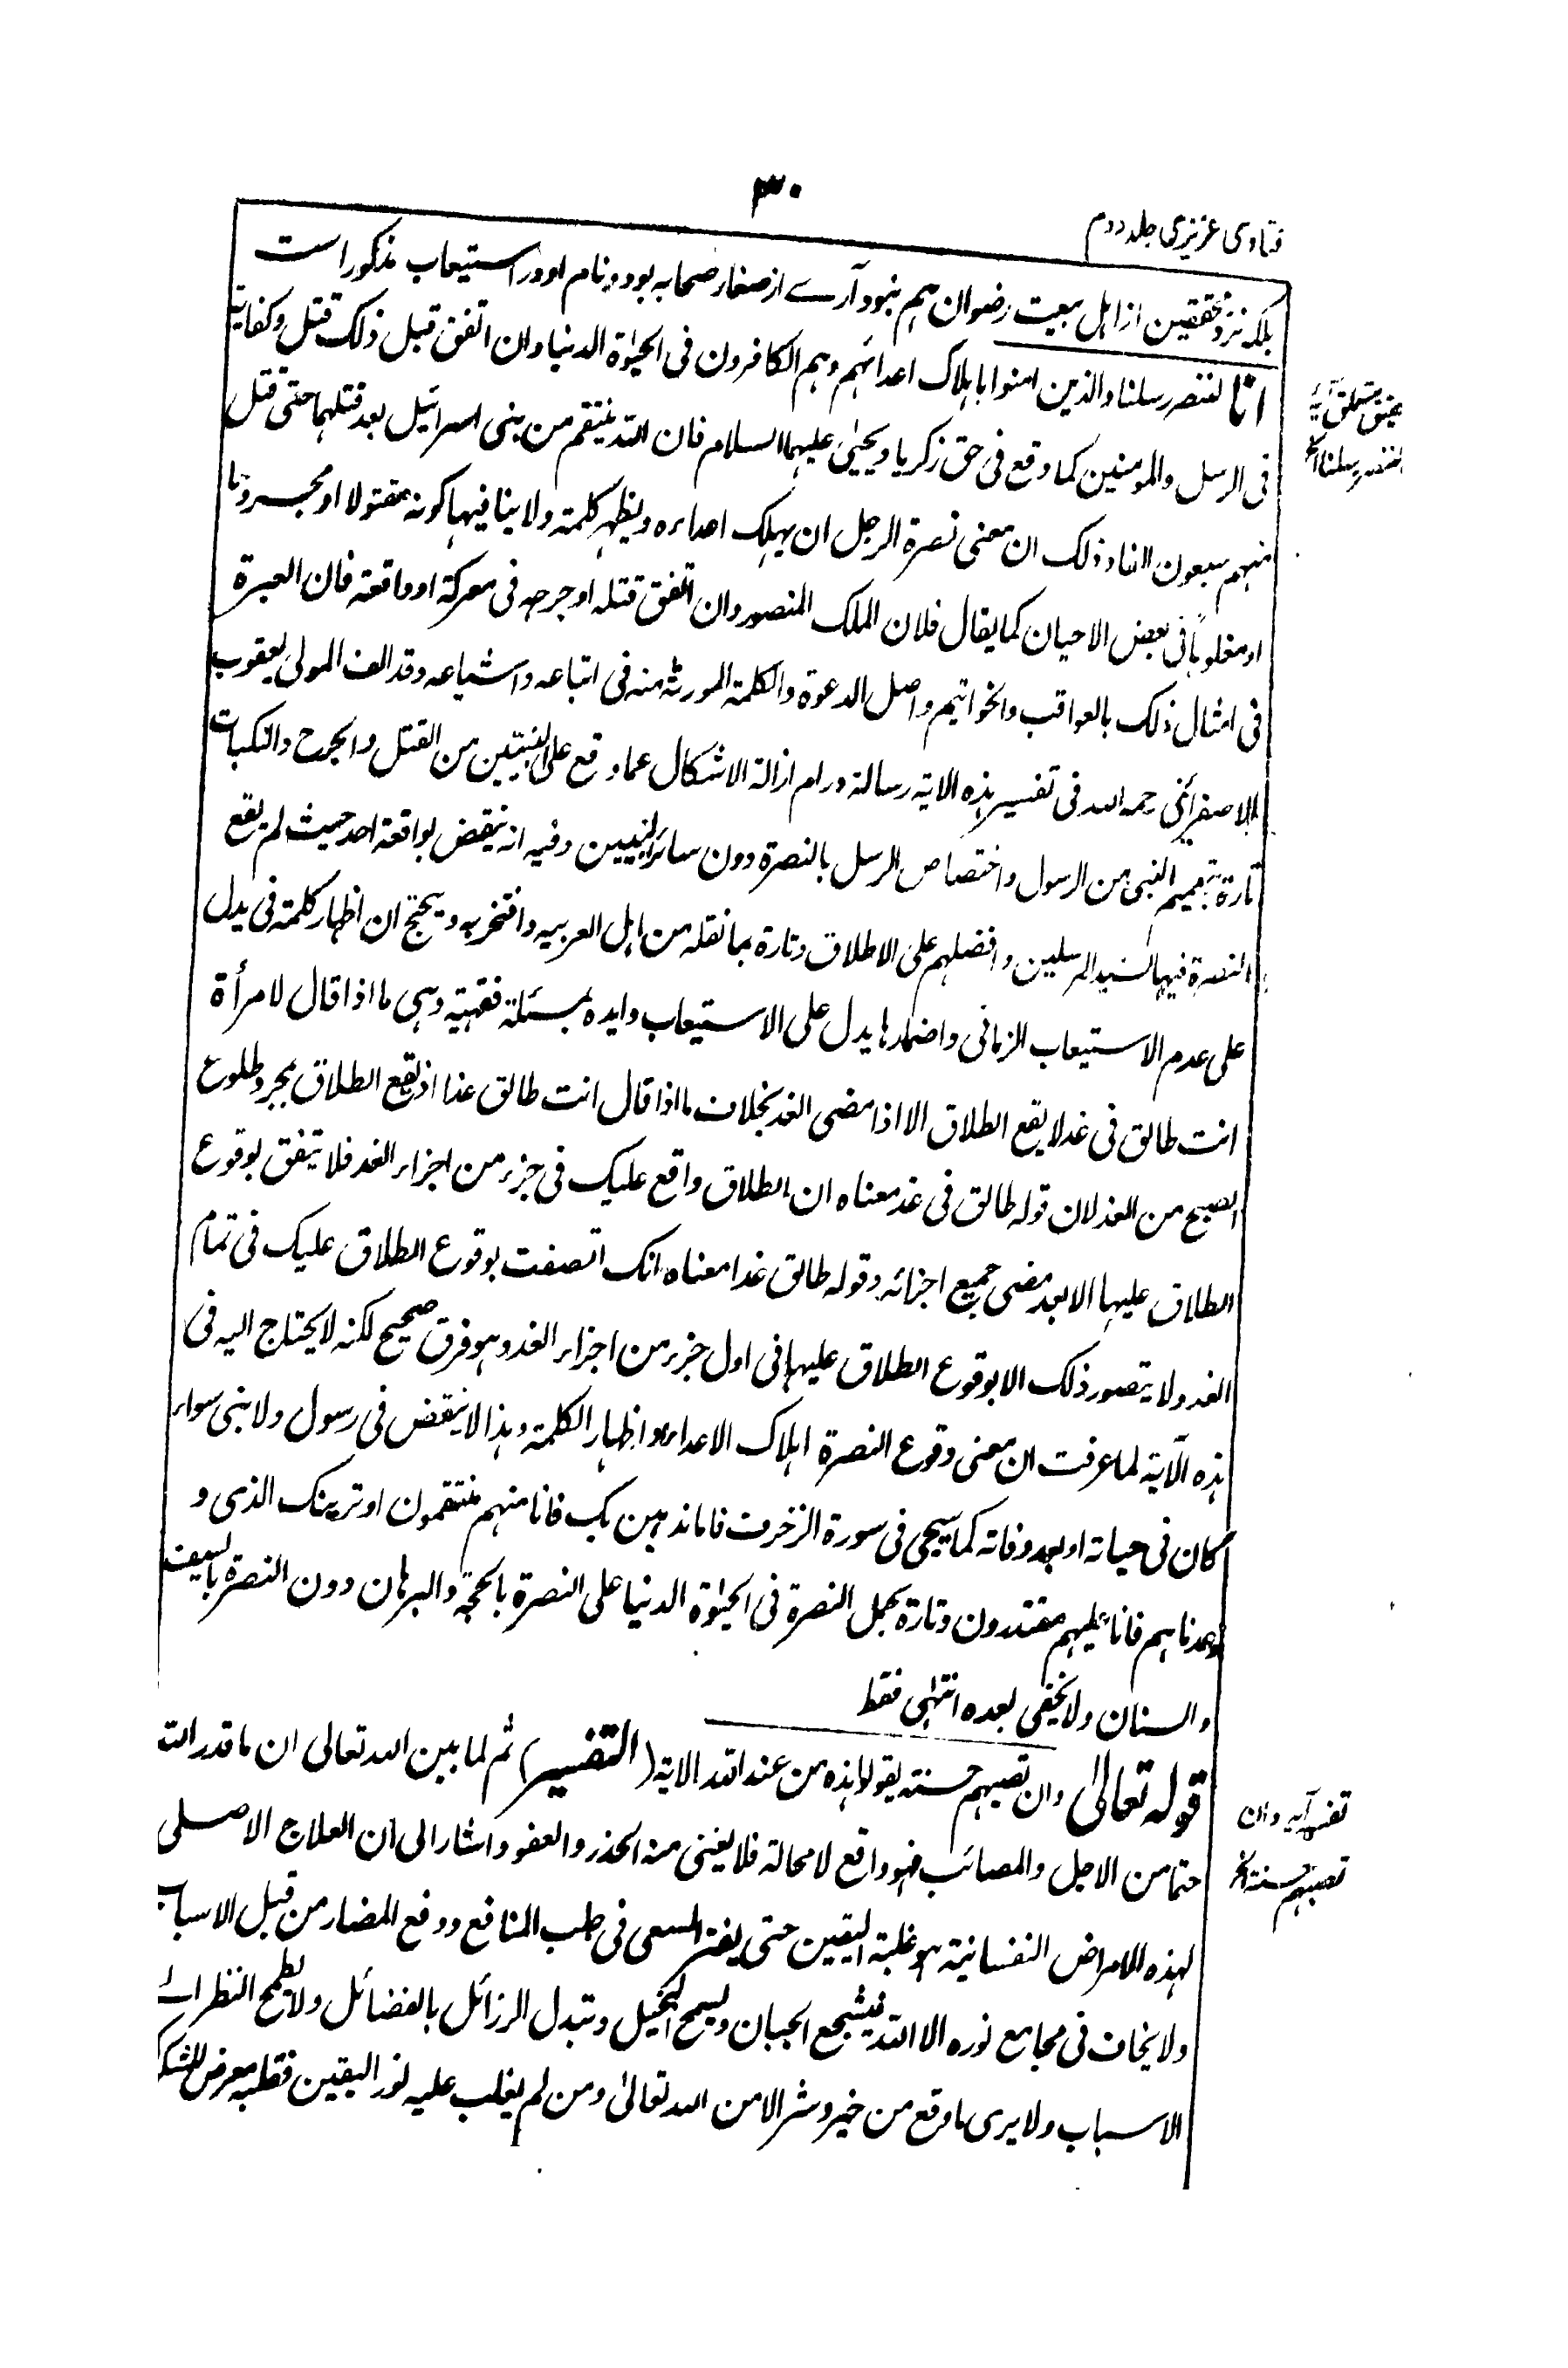 ۳۰
فتاوی عزیزی جلد دوم
بلکه نزد محققین از اهل بیعت رضوان هم نبود آرے از صغار صحابه بود و نام او در استیعاب مذکور است
انا لننصر رسلنا والذین امنوا باهلاک اعدائهم وهم الکافرون فی الحیوٰة الدنیا وان اتفق قبل ذلک قتل وکفایة
فی الرسل والمومنین کما وقع فی حق زکریا ویحییٰ علیهما السلام فان الله ینتقم من بنی اسرائیل بعد قتلهما حتی قتل
منهم سبعون الفا وذلک ان معنی نصرة الرجل ان یهلک اعداءه ویظهر کلمته ولا ینافیها کونه مقتولا او مجروحا
او مغلوباً فی بعض الاحیان کما یقال فلان الملک المنصور وان اتفق قتله او جرحه فی معرکة او واقعة فان العبرة
فی امثال ذلک بالعواقب والخواتیم واصل الدعوة والکلمة المورثة منه فی اتباعه واشیاعه وقد الف المولی یعقوب
الاصفرائنی رحمه الله فی تفسیر هذه الایة رسالة ورام ازالة الاشکال عما وقع علی النبیین من القتل والجرح والنکبات
تارة بتعمیم النبی من الرسول واختصاص الرسل بالنصرة دون سائر النبیین وفیه انه ینقض بواقعة احد حیث لم یقع
النصرة فیها لسید المرسلین وافضلهم علی الاطلاق وتارة بما نقله من اهل العربیه وافتخر به ویحتج ان اظهار کلمة فی یدل
علی عدم الاستیعاب الزمانی واضمارها یدل علی الاستیعاب وایده بمسئلة فقهیة وهی ما اذا قال لامرأة
انت طالق فی غد لا یقع الطلاق الا اذا مضی الغد بخلاف ما اذا قال انت طالق غدا اذ یقع الطلاق بمجرد طلوع
الصبح من الغد لان قوله طالق فی غد معناه ان الطلاق واقع علیک فی جزء من اجزاء الغد فلا یتفق بوقوع
الطلاق علیها الا بعد مضی جمیع اجزائه وقوله طالق غدا معناه انک اتصفت بوقوع الطلاق علیک فی تمام
الغد ولا یتصور ذلک الا بوقوع الطلاق علیها فی اول جزء من اجزاء الغد وهو فرق صحیح لکنه لا یحتاج الیه فی
هذه الآیة لما عرفت ان معنی وقوع النصرة اهلاک الاعداء واظهار الکلمة وهذا لا ینقض فی رسول ولا نبی سواء
کان فی حیاته او بعد وفاته کما سیجی فی سورة الزخرف فاما نذهبن بک فانا منهم منتقمون او نرینک الذی و
عدناهم فانا علیهم مقتدرون وتارة بحمل النصرة فی الحیوٰة الدنیا علی النصرة بالحجة والبرهان دون النصرة بالسیف
والسنان ولا یخفی بعده انتهی فقط
قوله تعالیٰ وان تصبهم حسنة یقولوا هذه من عند الله الایة (التفسیر) ثم لما بین الله تعالی ان ما قدر الله
حتما من الاجل والمصائب فهو واقع لا محالة فلا یغنی منه الحذر والعفو واشار الی ان العلاج الاصلی
لهذه الامراض النفسانیة هو غلبة الیقین حتی یفتر السعی فی طلب المنافع ودفع المضار من قبل الاسباب
ولا یخاف فی مجامع نوره الا الله فیتشجع الجبان ویسمح البخیل وتتبدل الرزائل بالفضائل ولا یطمح النظر الے
الاسباب ولا یری ما وقع من خیر وشر الا من الله تعالیٰ ومن لم یغلب علیه نور الیقین فقلبه معرض للشک
متعلق آیه
لننصر رسلنا الخ
تفسیر آیه وان
تصبهم حسنة الخ